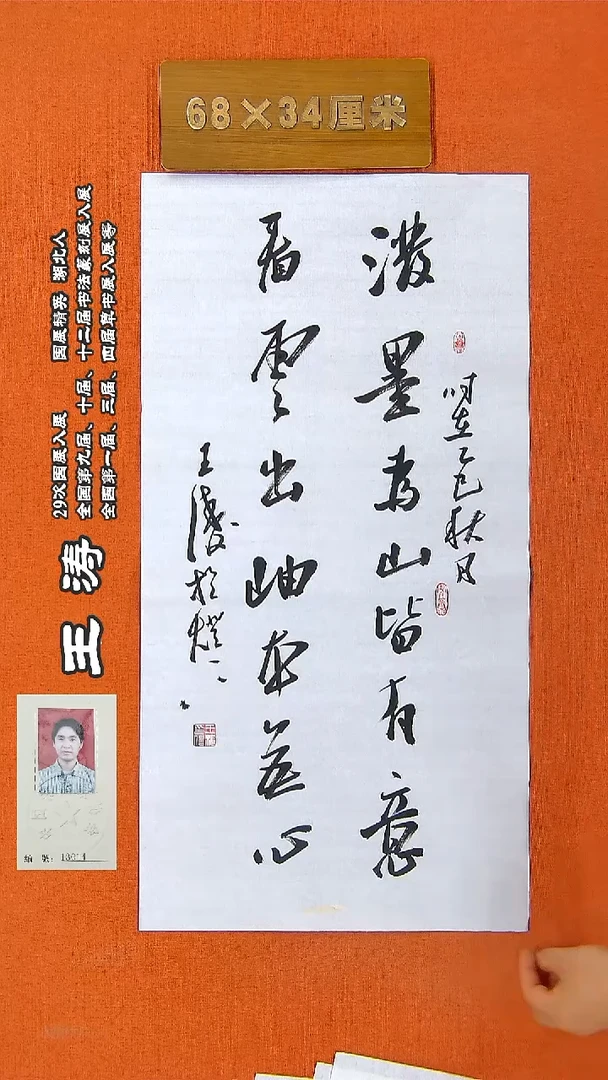 68×34厘米
潑墨为山皆有意
看雲出岫本無心
时在乙巳秋月
王濤於
29次国展入展 国展精英 湖北人
全国第九届、十届、十二届书法篆刻展入展
全国第一届、三届、四届草书展入展等
王 涛
编号: